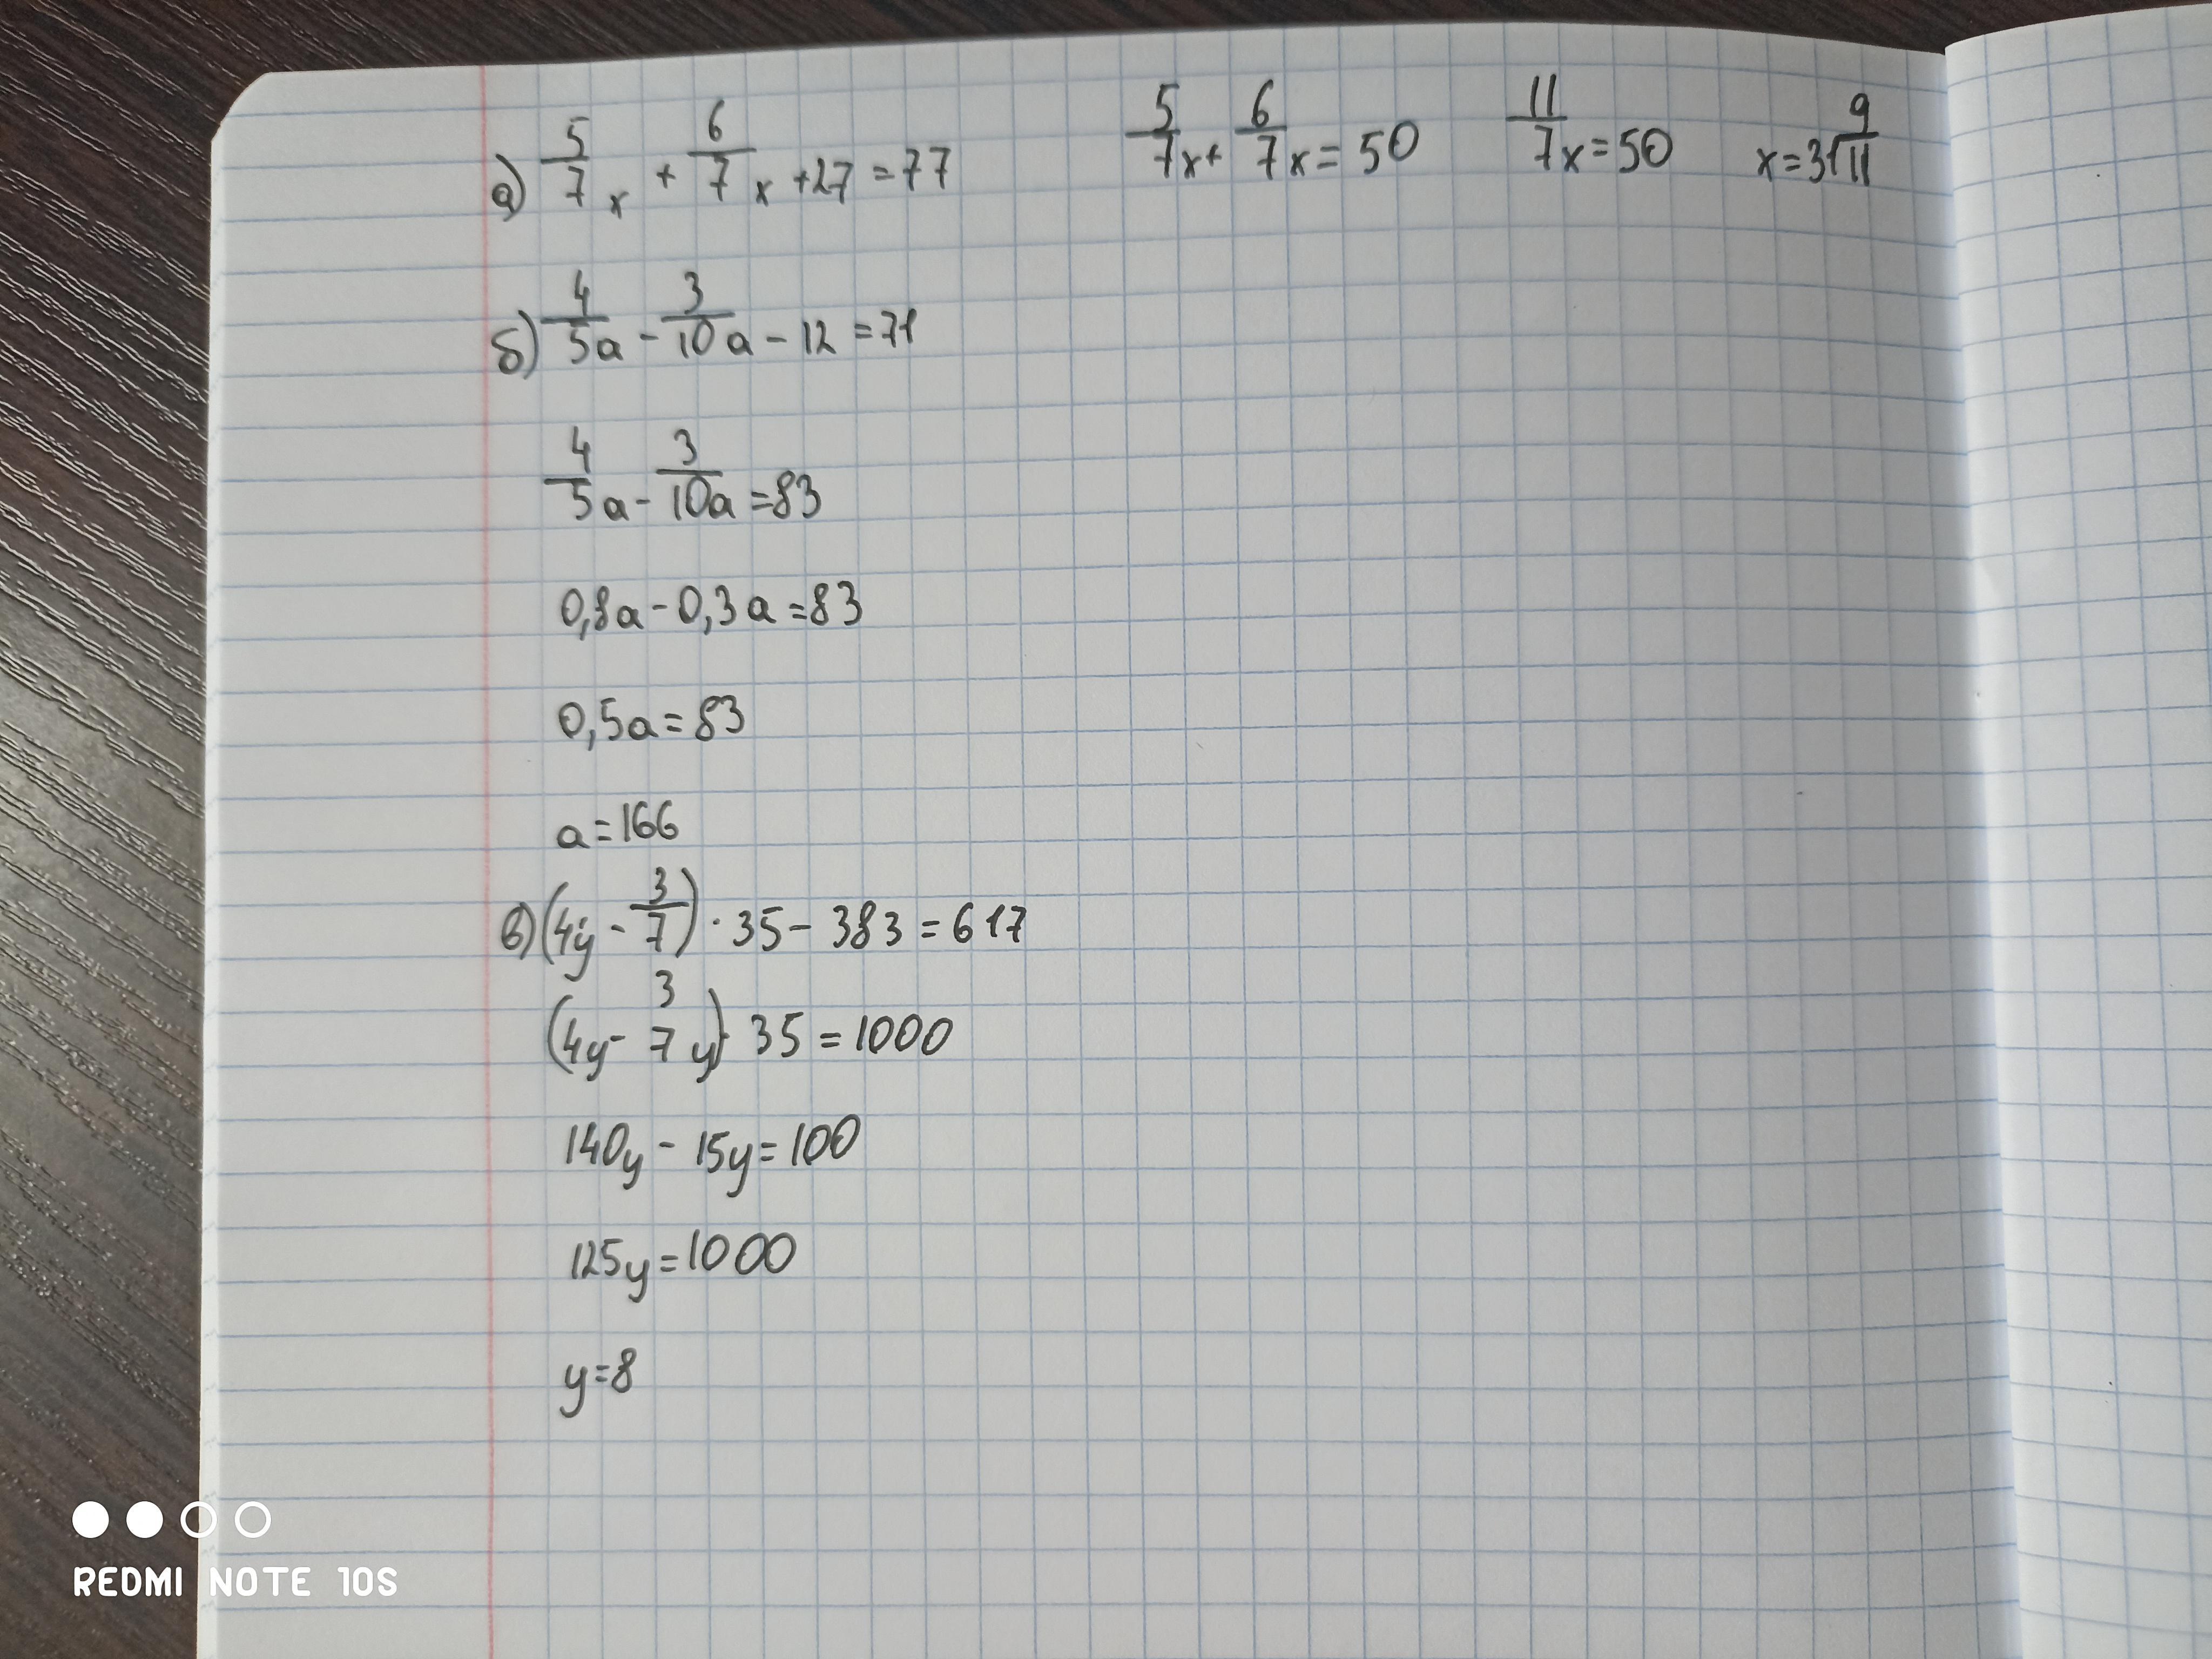 а) 5/7 x + 6/7 x + 27 = 77   5/7 x + 6/7 x = 50   11/7 x = 50   x = 31 9/11
б) 4/5 a - 3/10 a - 12 = 71
4/5 a - 3/10 a = 83
0,8a - 0,3a = 83
0,5a = 83
a = 166
в) (4y - 3/7) · 35 - 383 = 617
(4y - 3/7 y) · 35 = 1000
140y - 15y = 100
125y = 1000
y = 8
REDMI NOTE 10S